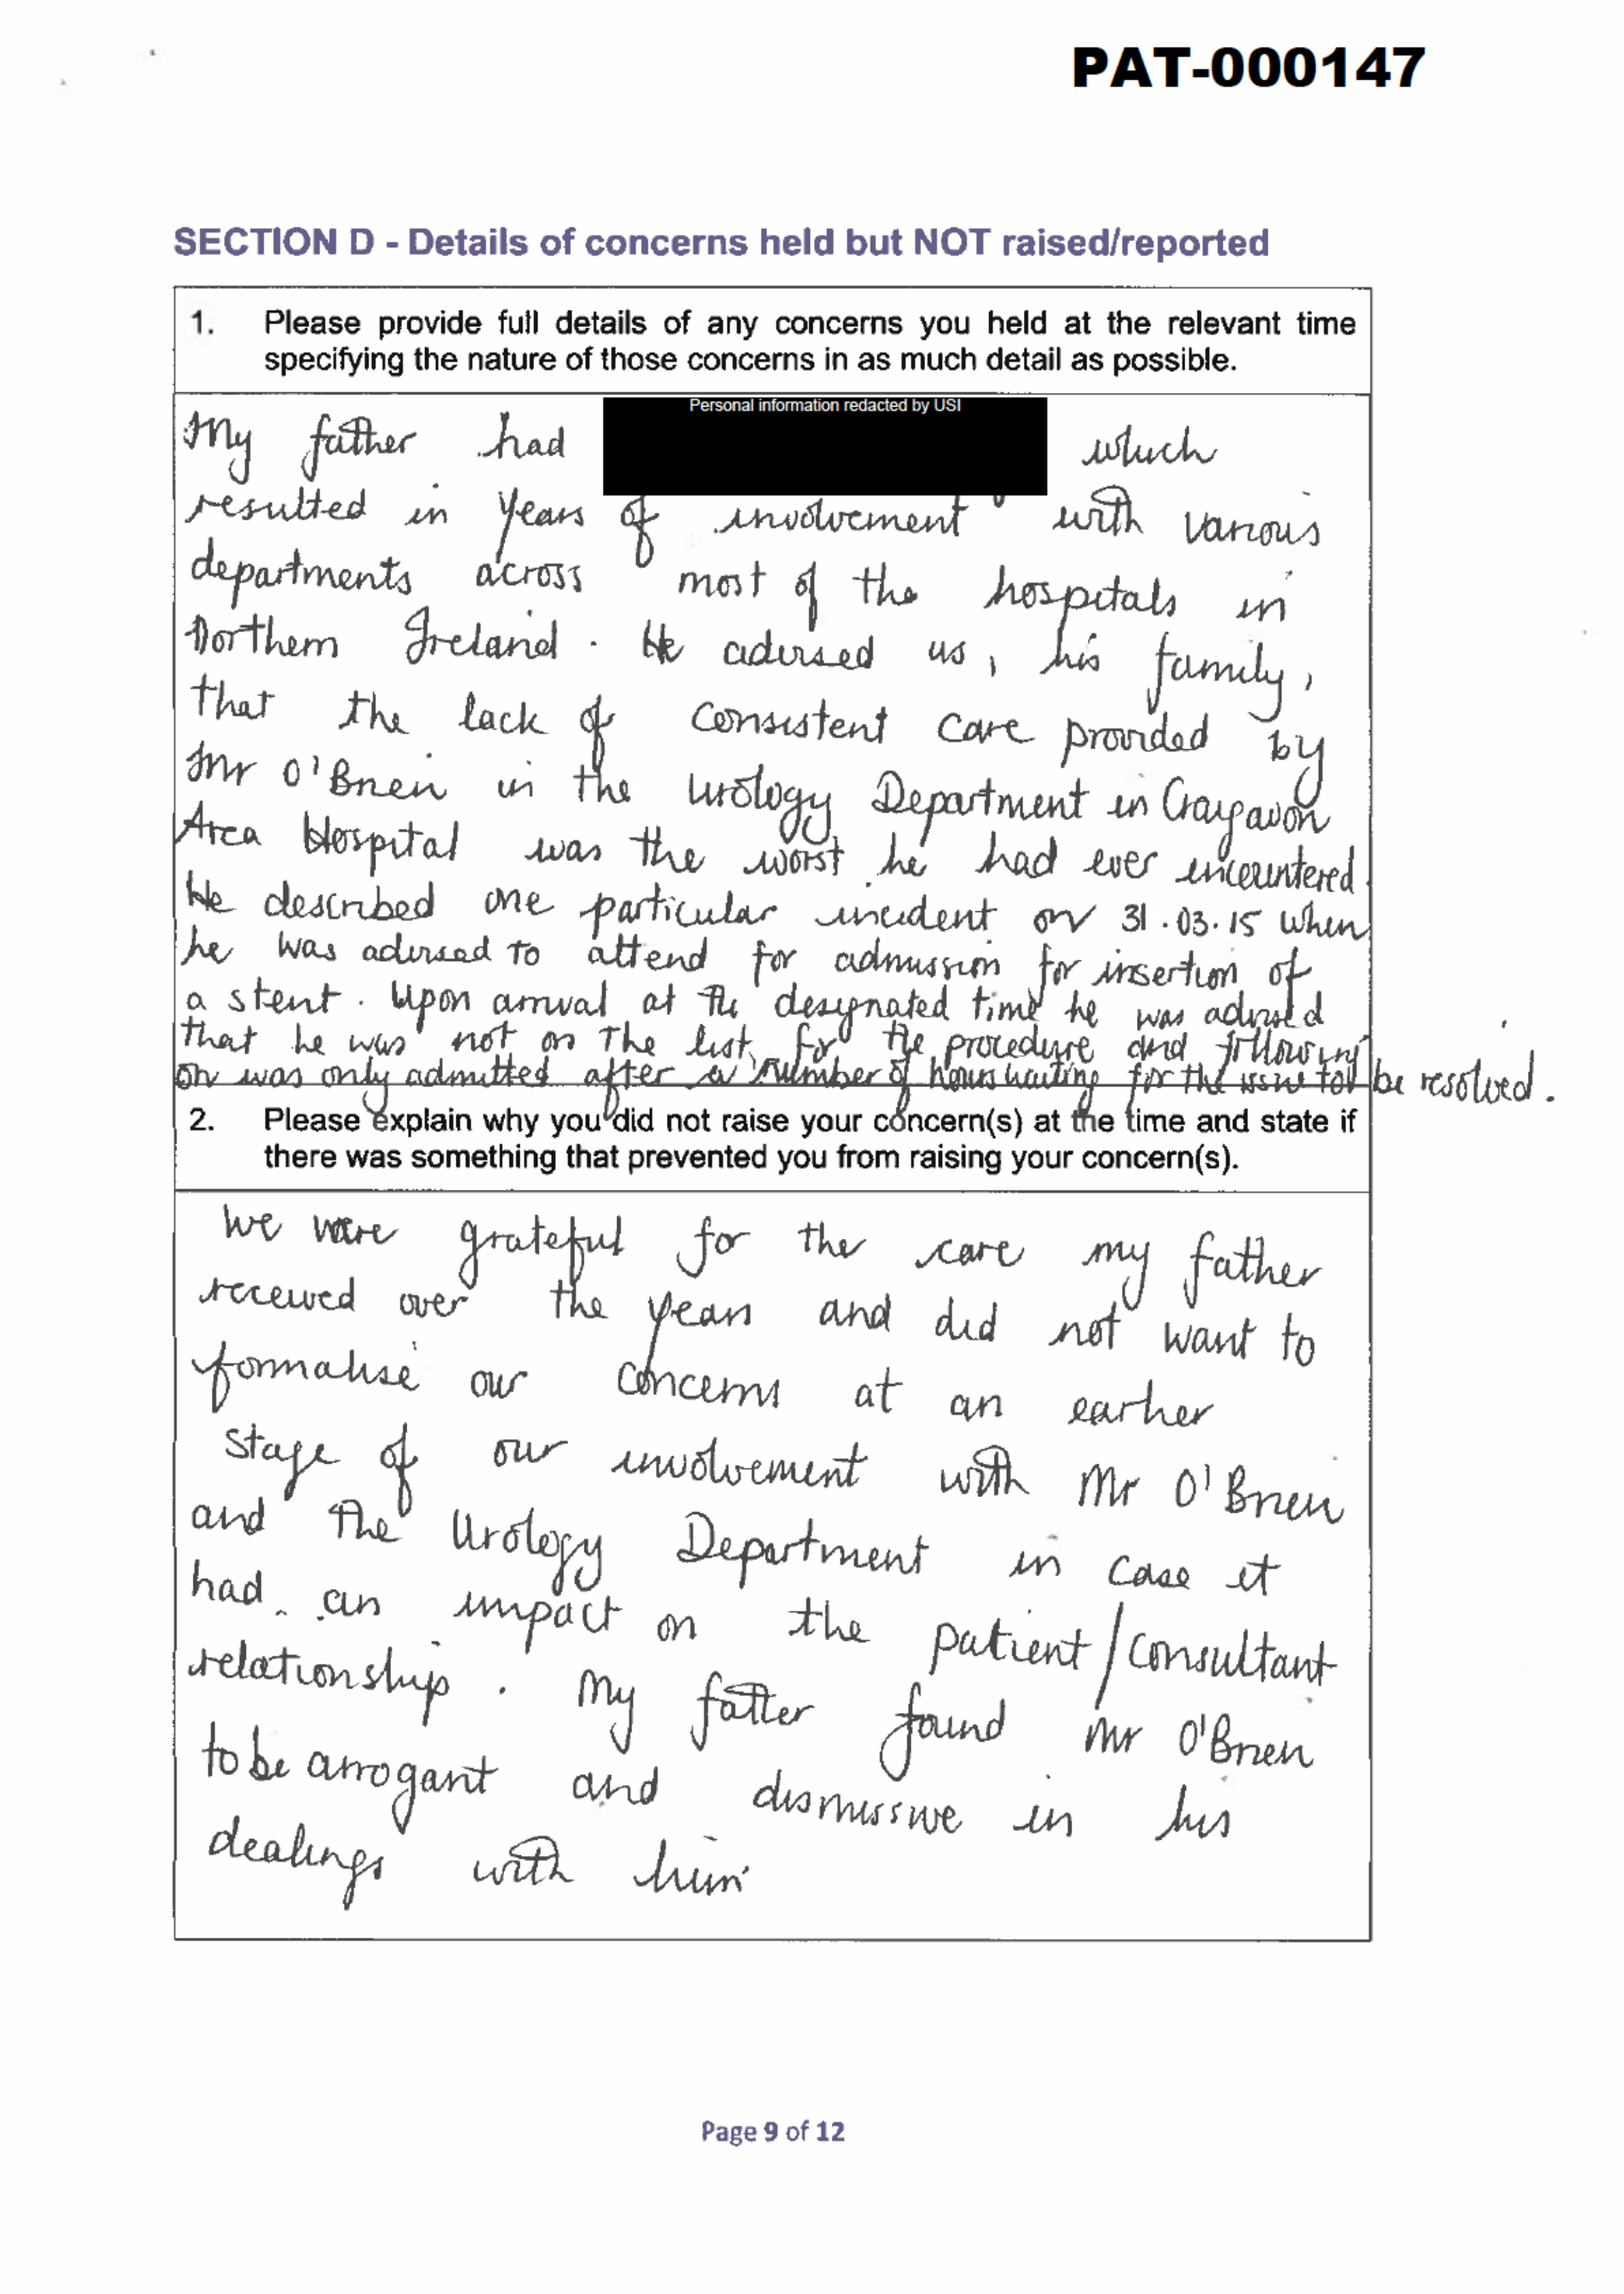 PAT-000147
SECTION D - Details of concerns held but NOT raised/reported
1. Please provide full details of any concerns you held at the relevant time
specifying the nature of those concerns in as much detail as possible.
Personal information redacted by USI
My father had which
resulted in years of involvement with various
departments across most of the hospitals in
Northern Ireland. He advised us, his family,
that the lack of consistent care provided by
Mr O'Brien in the Urology Department in Craigavon
Area Hospital was the worst he had ever encountered.
He described one particular incident on 31.03.15 when
he was advised to attend for admission for insertion of
a stent. Upon arrival at the designated time he was advised
that he was not on the list for the procedure and following
on was only admitted after a number of hours waiting for the issue to be resolved.
2. Please explain why you did not raise your concern(s) at the time and state if
there was something that prevented you from raising your concern(s).
We were grateful for the care my father
received over the years and did not want to
formalise our concerns at an earlier
stage of our involvement with Mr O'Brien
and the Urology Department in case it
had an impact on the patient/consultant
relationship. My father found Mr O'Brien
to be arrogant and dismissive in his
dealings with him
Page 9 of 12